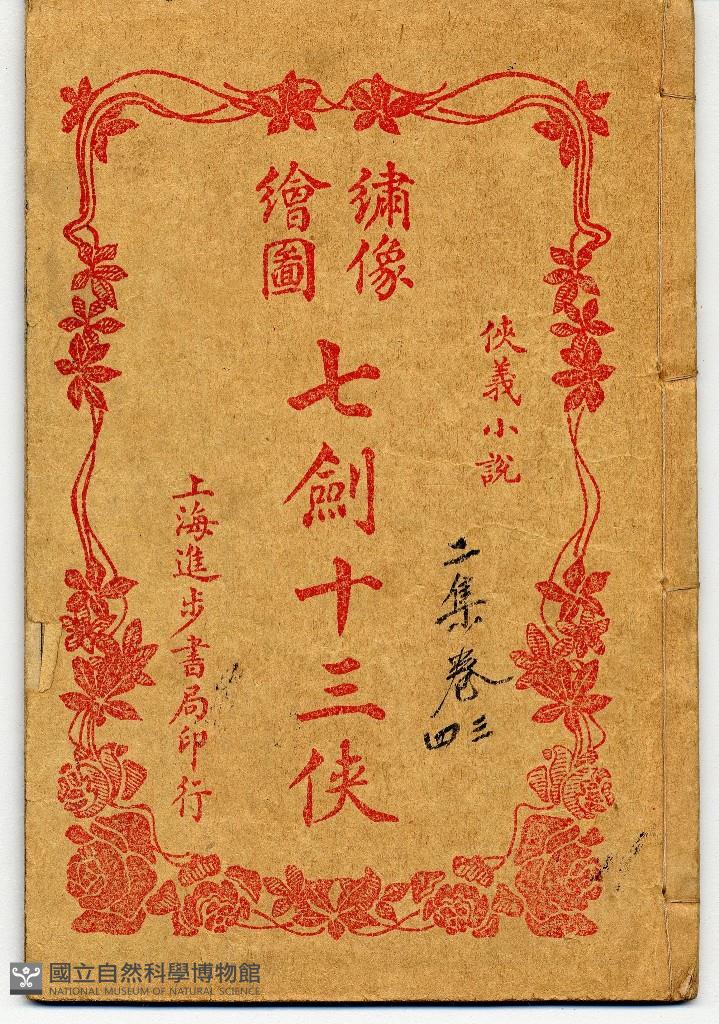 俠義小說
繡像
繪圖
七劍十三俠
二集卷
三
四
上海進步書局印行
國立自然科學博物館
NATIONAL MUSEUM OF NATURAL SCIENCE